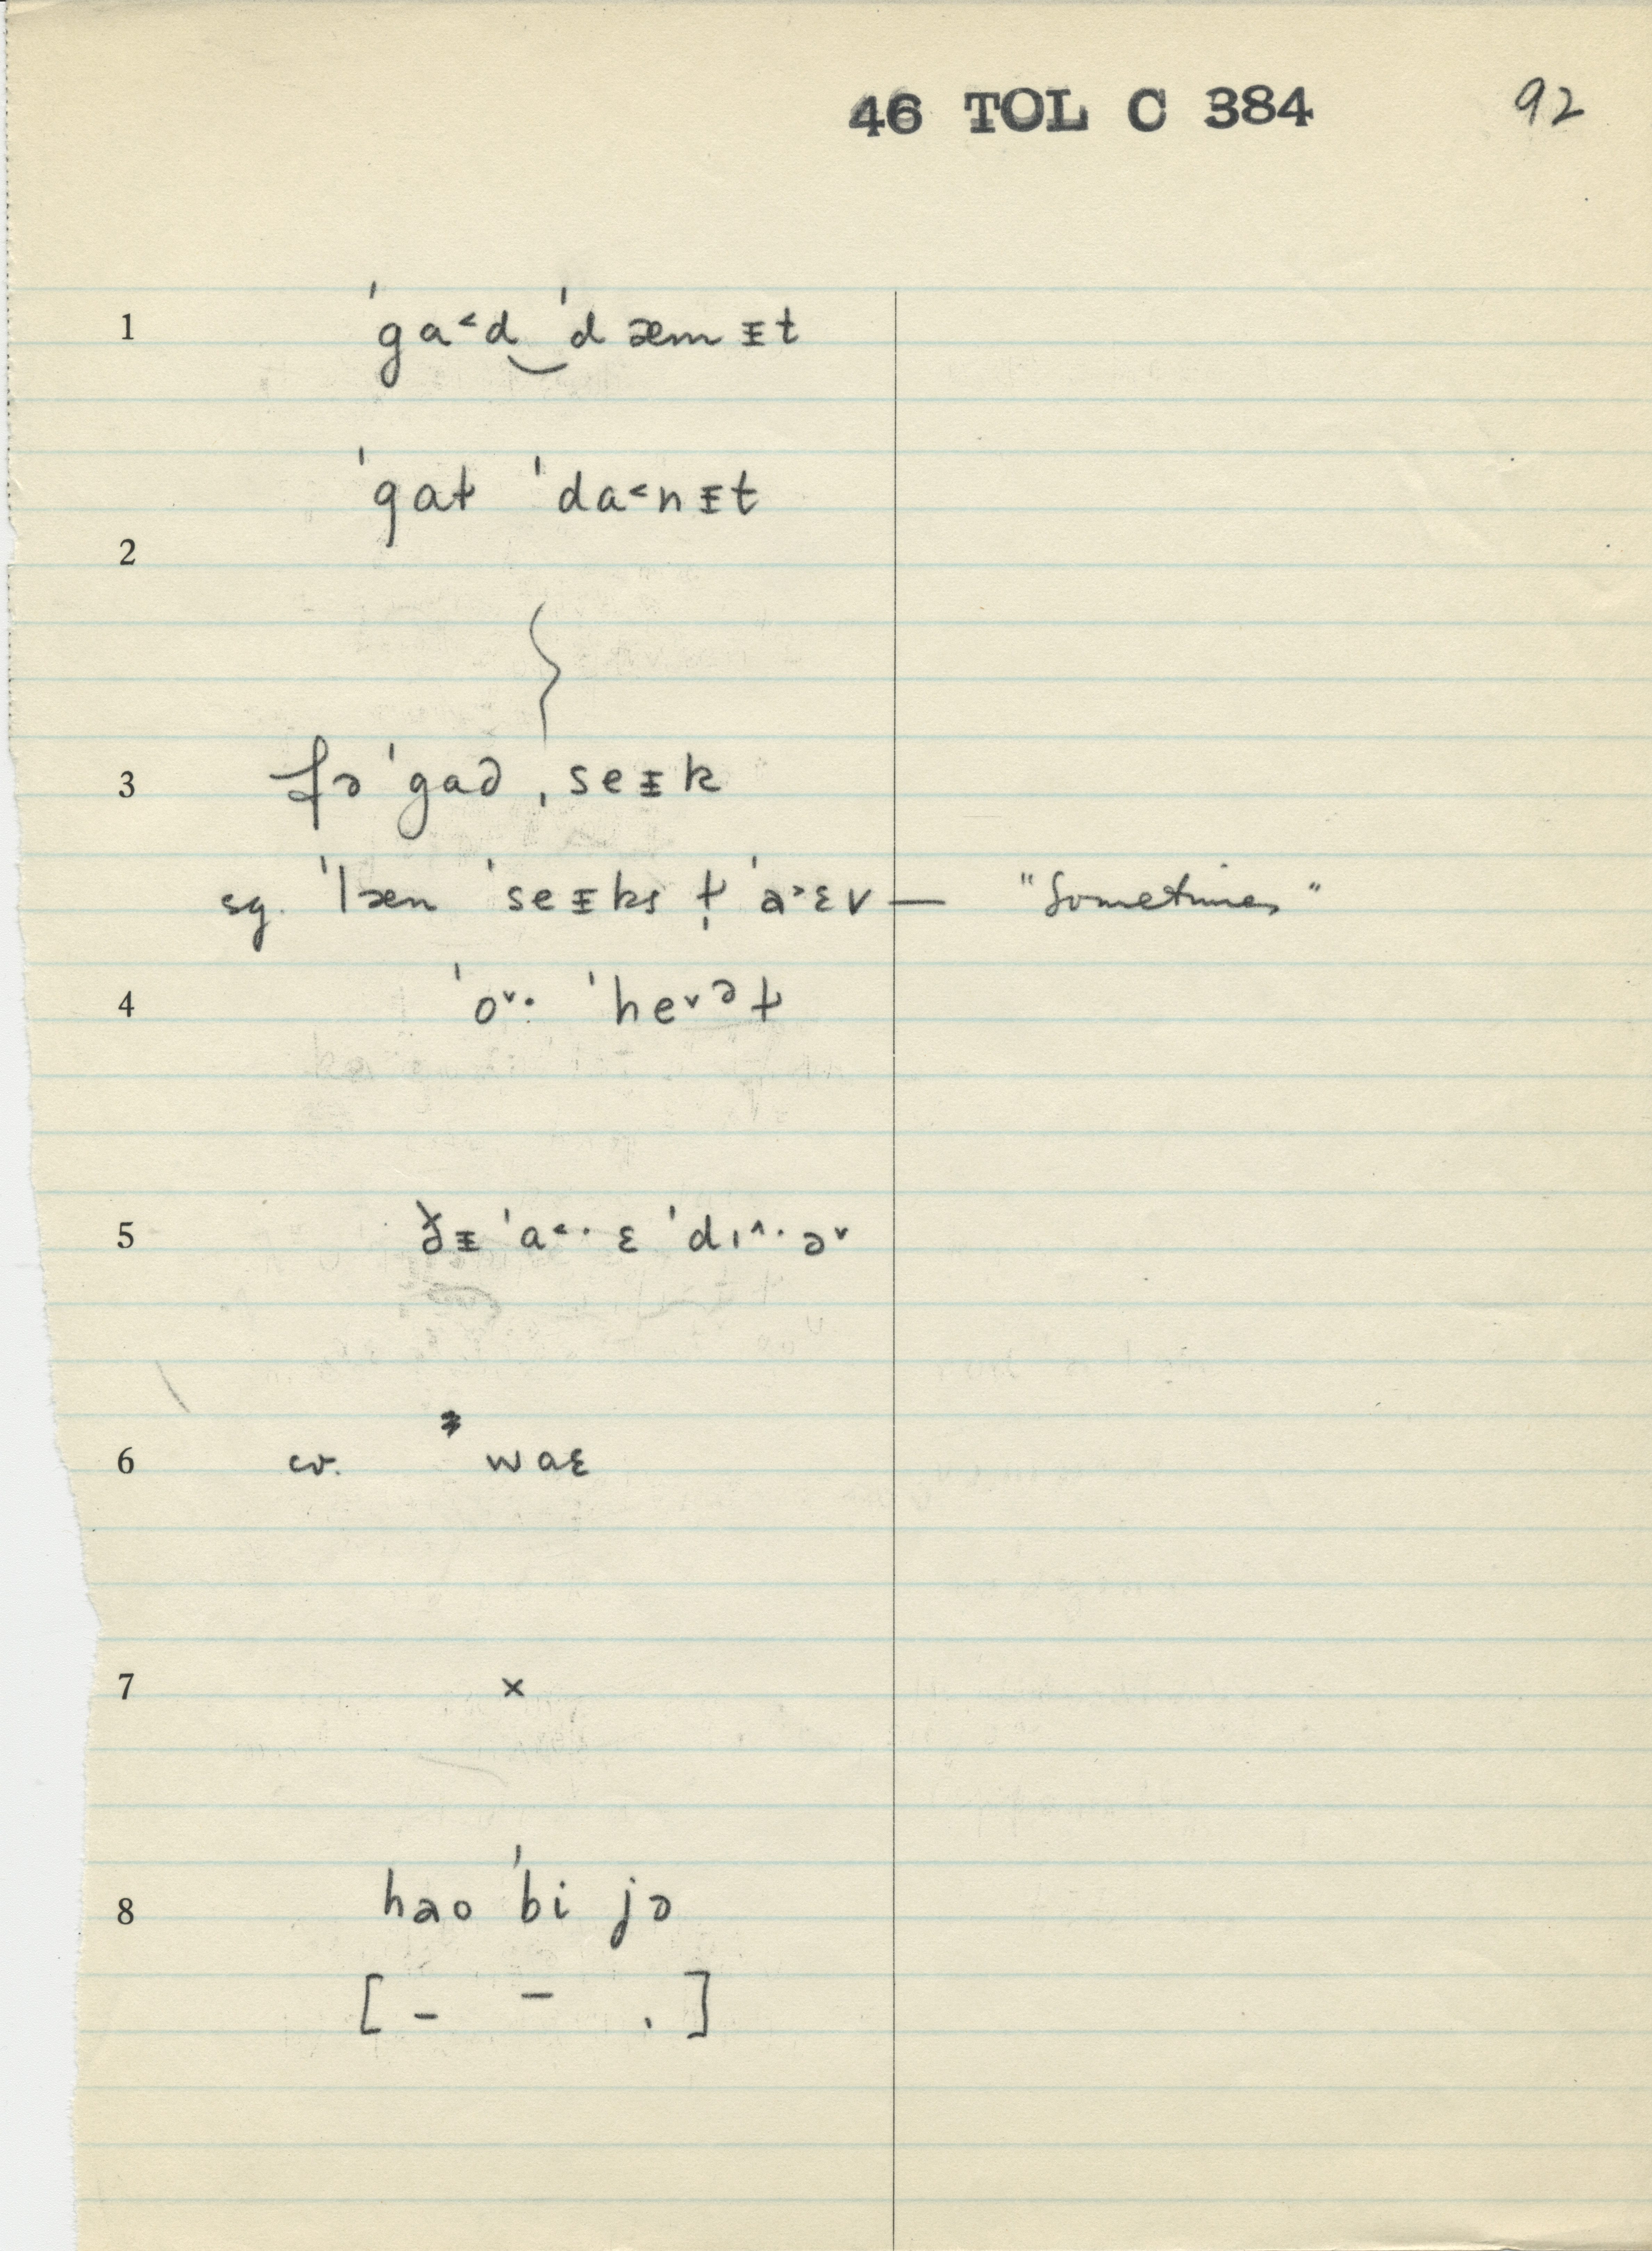 46 TOL C 384 92
1 ˈga˂d‿ˈdæmɪ̵t
ˈgaƚ ˈda˂nɪ̵t
2
3 fə ˈgad ˌseɪ̵k
sg. ˈlæn ˈseɪ̵ks ţ ˈa˃ɛv — "Sometimes"
4 ˈo˅· ˈhe˅ət̵
5 ðɪ̵ ˈa˂· ɛ ˈdɪ˄· ə˅
6 cv. * waɛ
7 ×
8 hao ˈbi jə
[ – – . ]